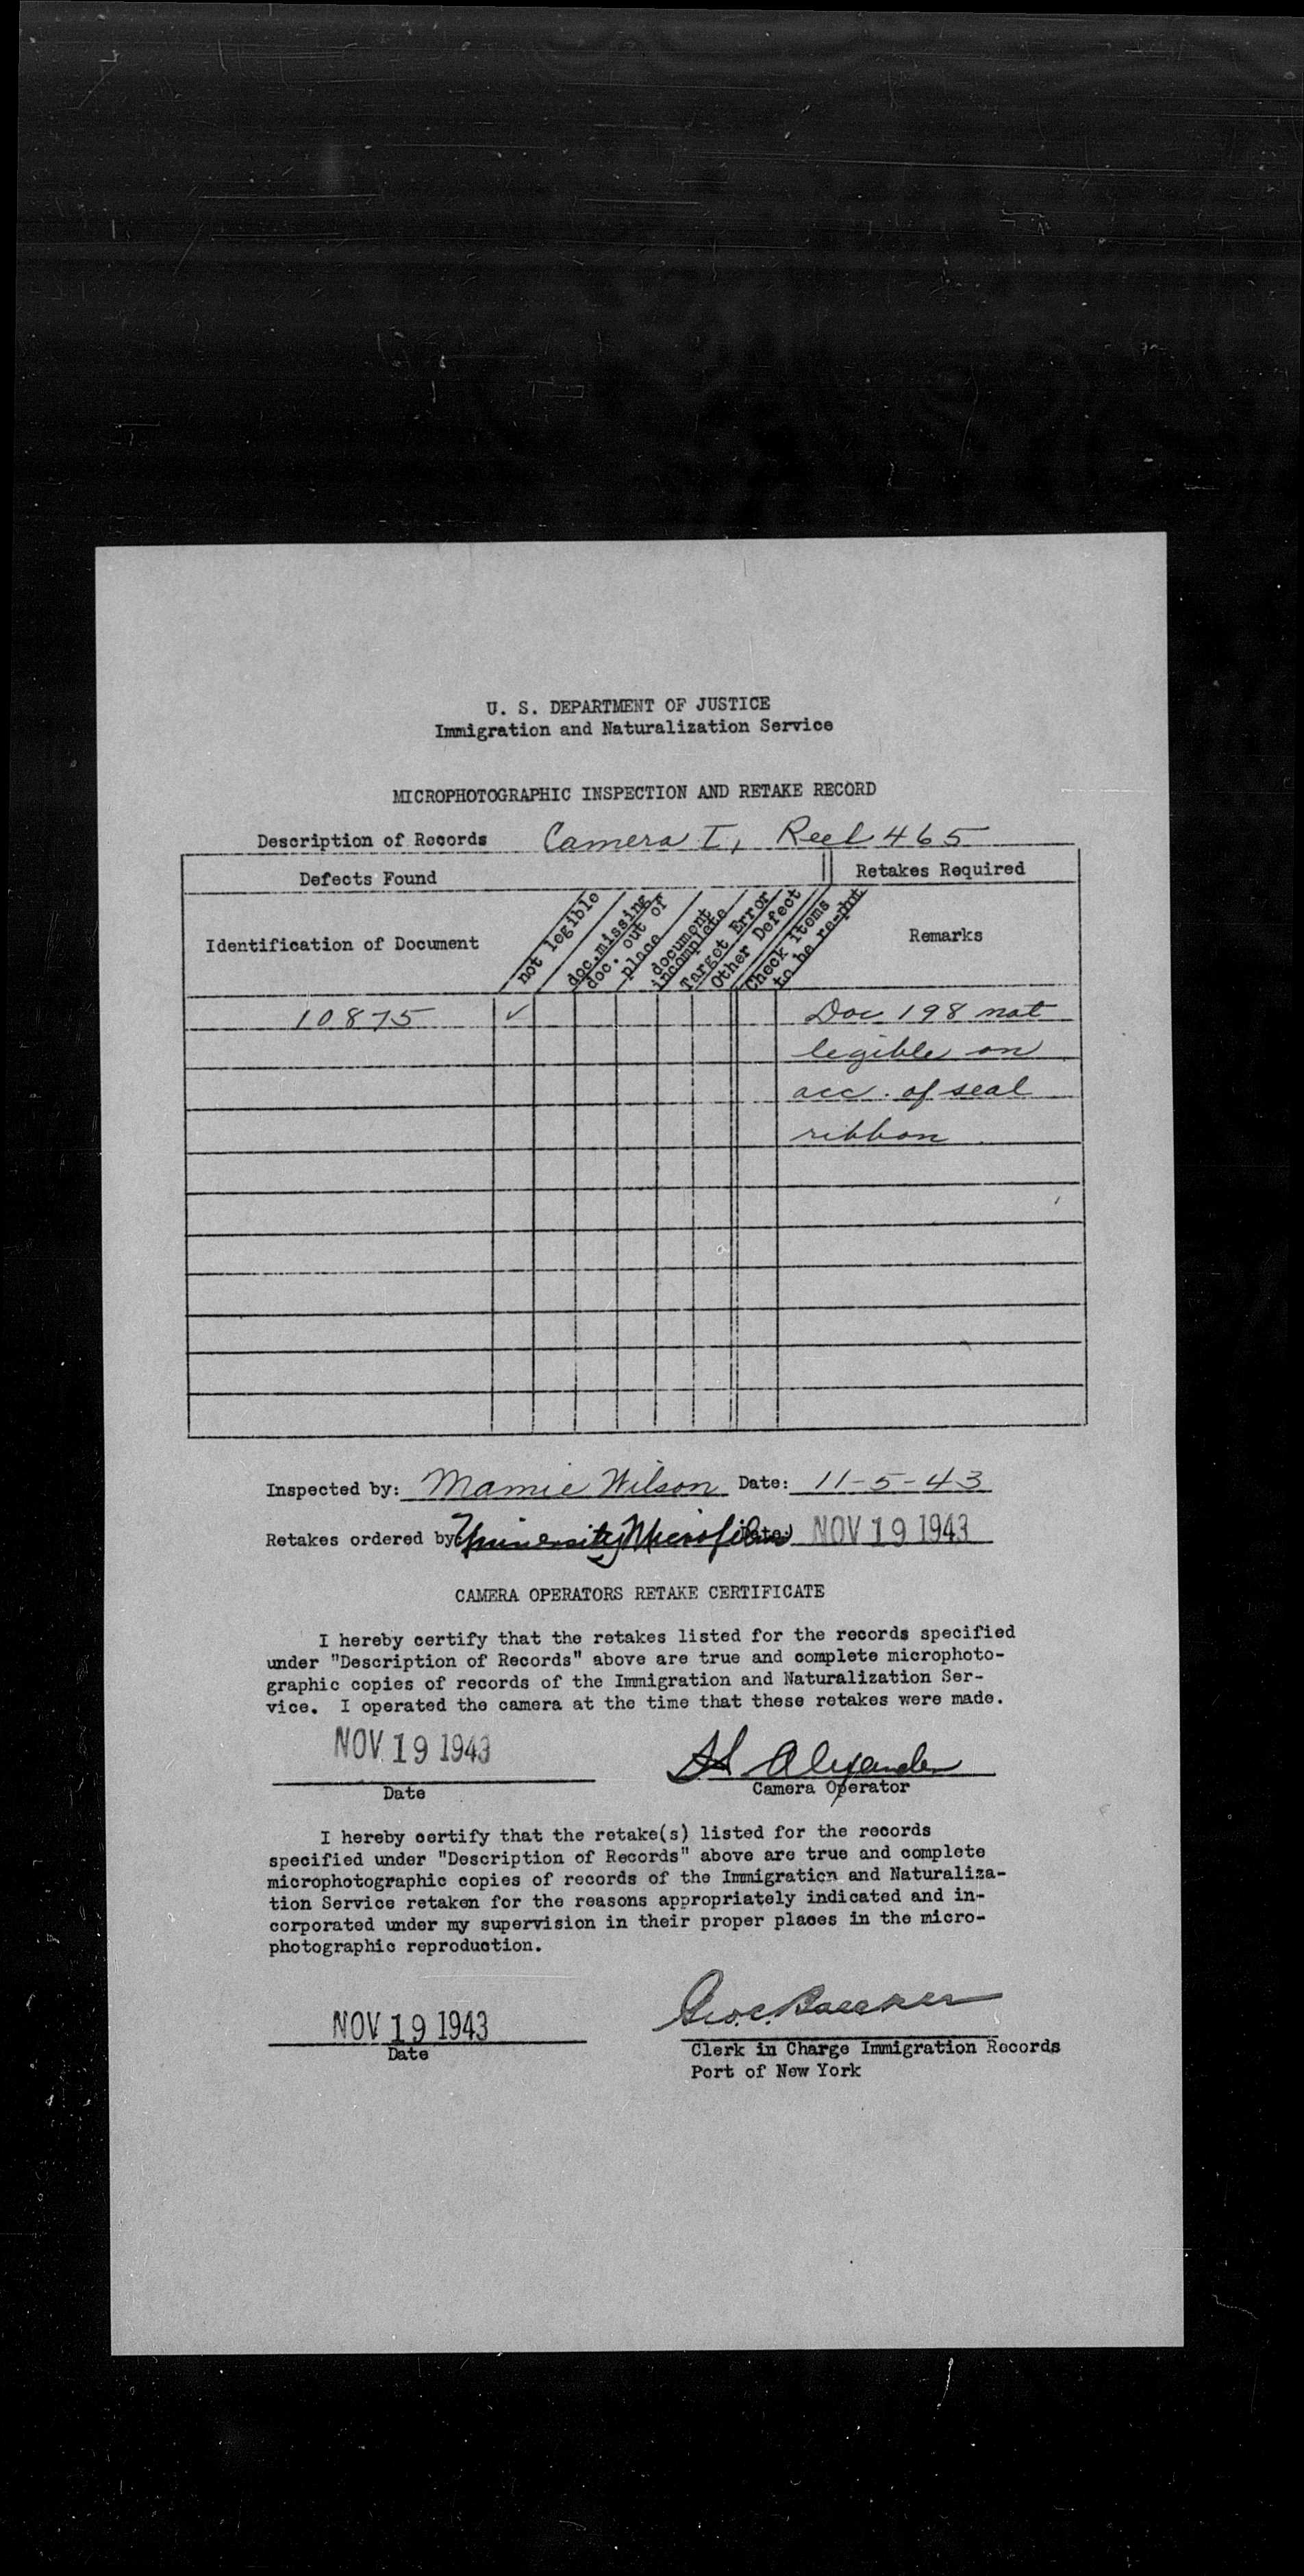 U. S. DEPARTMENT OF JUSTICE
Immigration and Naturalization Service
MICROPHOTOGRAPHIC INSPECTION AND RETAKE RECORD
Description of Records Camera I, Reel 465
Defects Found Retakes Required
Identification of Document
not legible
doc. missing
doc. out of
place
document
incomplete
Target Error
Other Defect
Check Items
to be re-phot
Remarks
10875 ✓ Doc 198 not
legible on
acc. of seal
ribbon
Inspected by: Mamie Wilson Date: 11-5-43
Retakes ordered by University Microfilms Date: NOV 19 1943
CAMERA OPERATORS RETAKE CERTIFICATE
I hereby certify that the retakes listed for the records specified
under "Description of Records" above are true and complete microphoto-
graphic copies of records of the Immigration and Naturalization Ser-
vice. I operated the camera at the time that these retakes were made.
NOV 19 1943 Alexander
Date Camera Operator
I hereby certify that the retake(s) listed for the records
specified under "Description of Records" above are true and complete
microphotographic copies of records of the Immigration and Naturaliza-
tion Service retaken for the reasons appropriately indicated and in-
corporated under my supervision in their proper places in the micro-
photographic reproduction.
NOV 19 1943 Geo. C.
Date Clerk in Charge Immigration Records
Port of New York